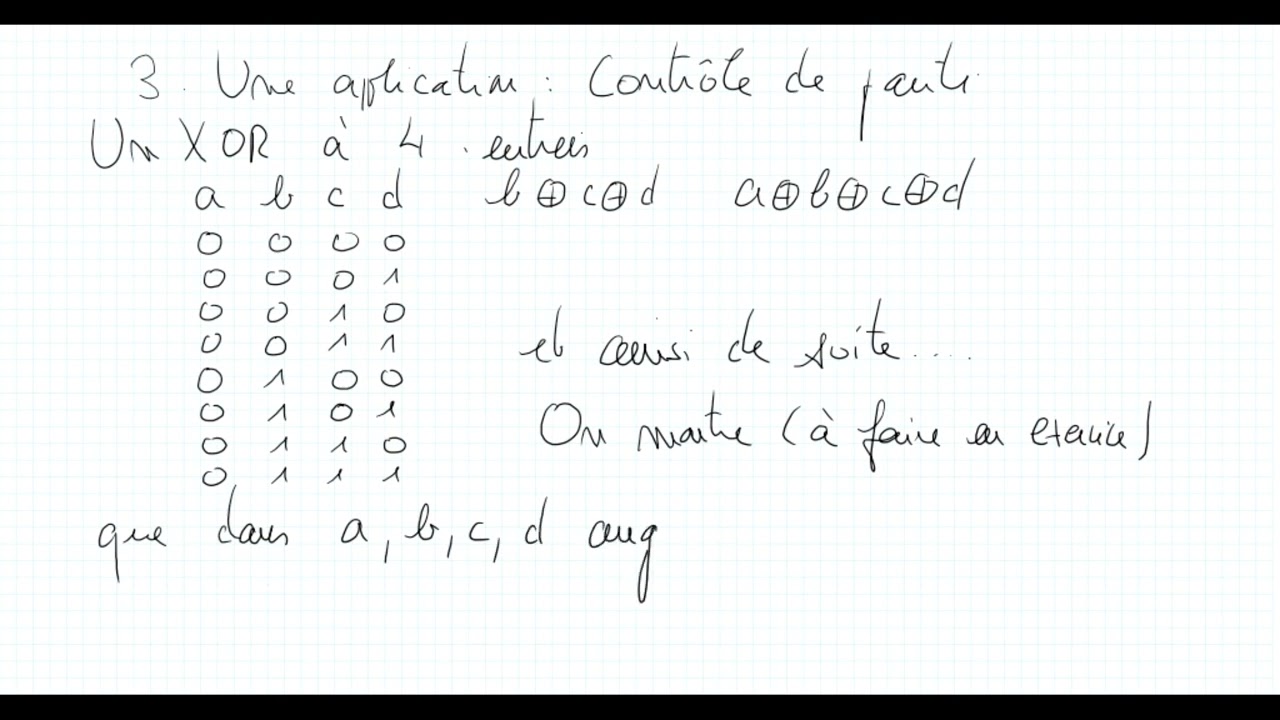 3. Une application : Contrôle de parité
Un XOR à 4 entrées
a b c d b⊕c⊕d a⊕b⊕c⊕d
0 0 0 0
0 0 0 1
0 0 1 0
0 0 1 1 et ainsi de suite....
0 1 0 0
0 1 0 1 On montre (à faire en exercice)
0 1 1 0
0 1 1 1
que dans a, b, c, d